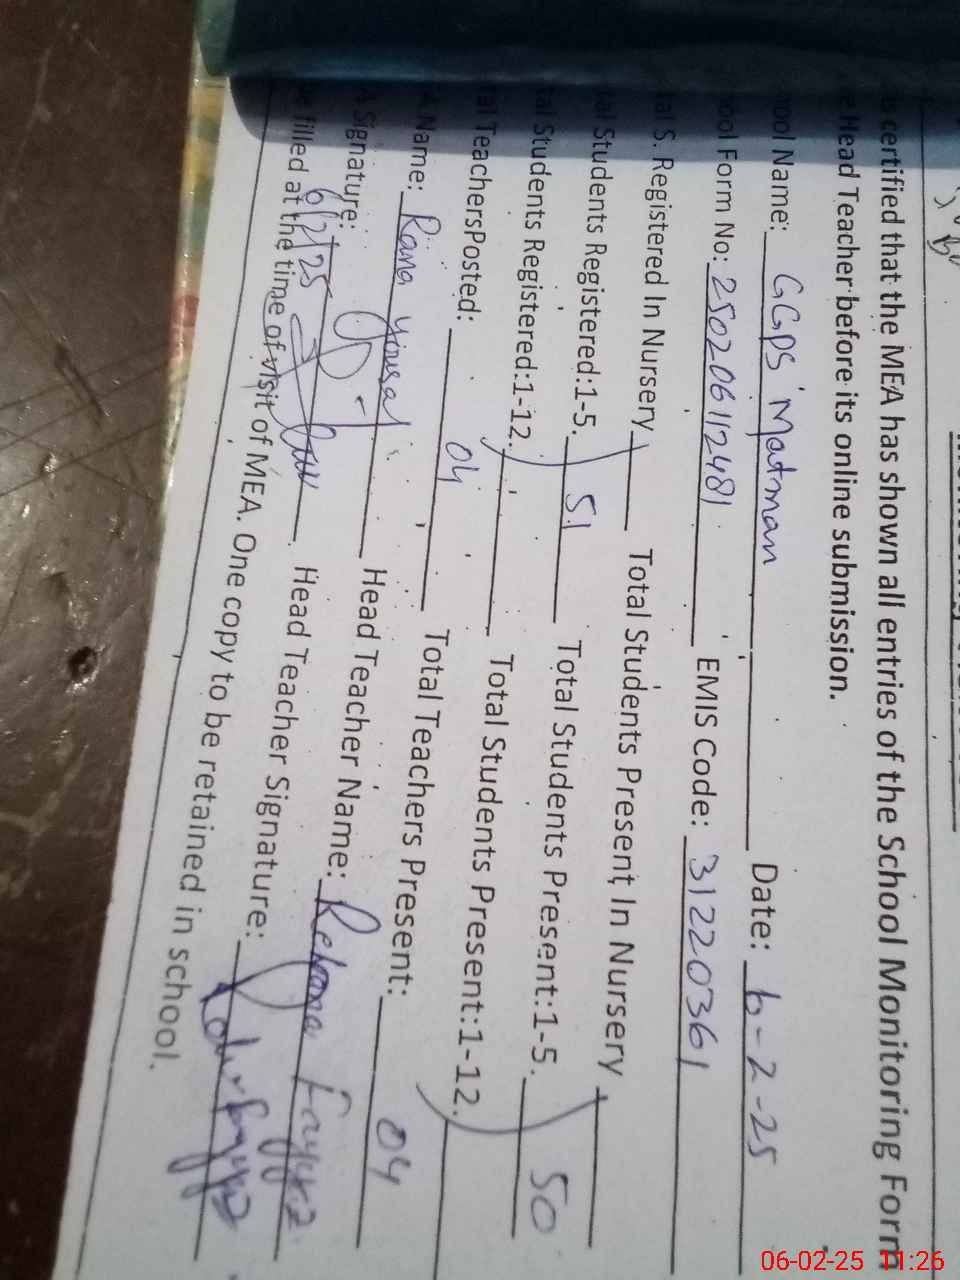 certified that the MEA has shown all entries of the School Monitoring Form
Head Teacher before its online submission.
ool Name: GGPS Matman Date: 6-2-25
ool Form No: 250206112481 EMIS Code: 31220361
tal S. Registered In Nursery Total Students Present In Nursery
al Students Registered:1-5. 51 Total Students Present:1-5. 50
al Students Registered:1-12. Total Students Present:1-12.
al TeachersPosted: 04 Total Teachers Present: 04
Name: Rana Head Teacher Name: Rehana
A Signature: Head Teacher Signature:
6/2/25
e filled at the time of visit of MEA. One copy to be retained in school.
06-02-25 11:26